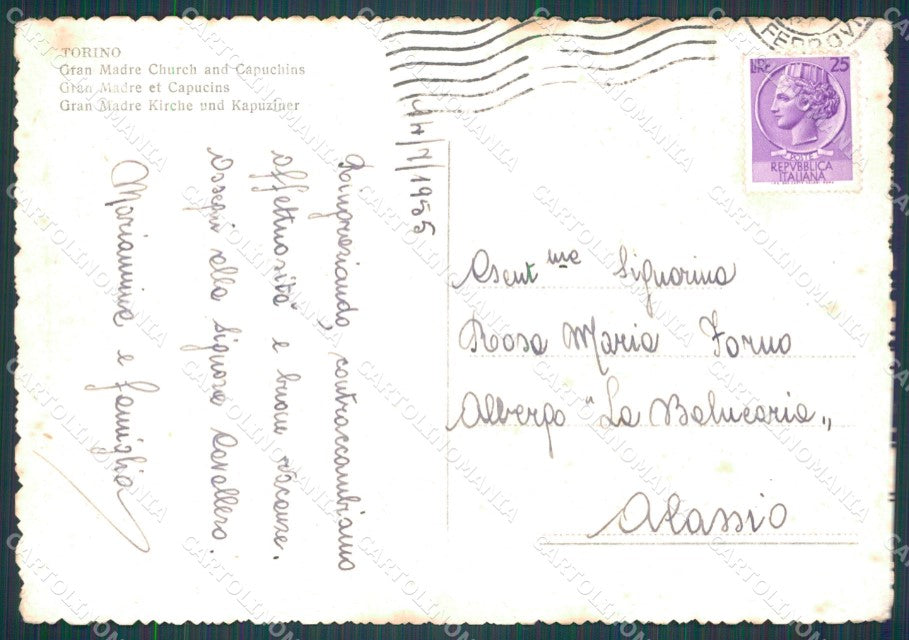 TORINO
Gran Madre Church and Capuchins
Gran Madre et Capucins
Gran Madre Kirche und Kapuziner
14/7/1955
Ringraziando, contraccambiamo
affettuosità e buone vacanze.
Ossequi alla Signora Cavallero.
Mariannina e famiglia
FERROVI
LIRE 25
POSTE
REPVBBLICA
ITALIANA
Gent.me Signorina
Rosa Maria Forno
Albergo "La Balnearia"
Alassio
CARTOLINOMANIA